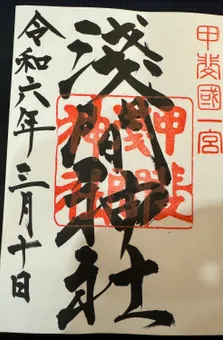 甲斐國一宮
淺間神社
甲斐國
淺間神社
令和六年三月十日